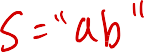 S = "ab"